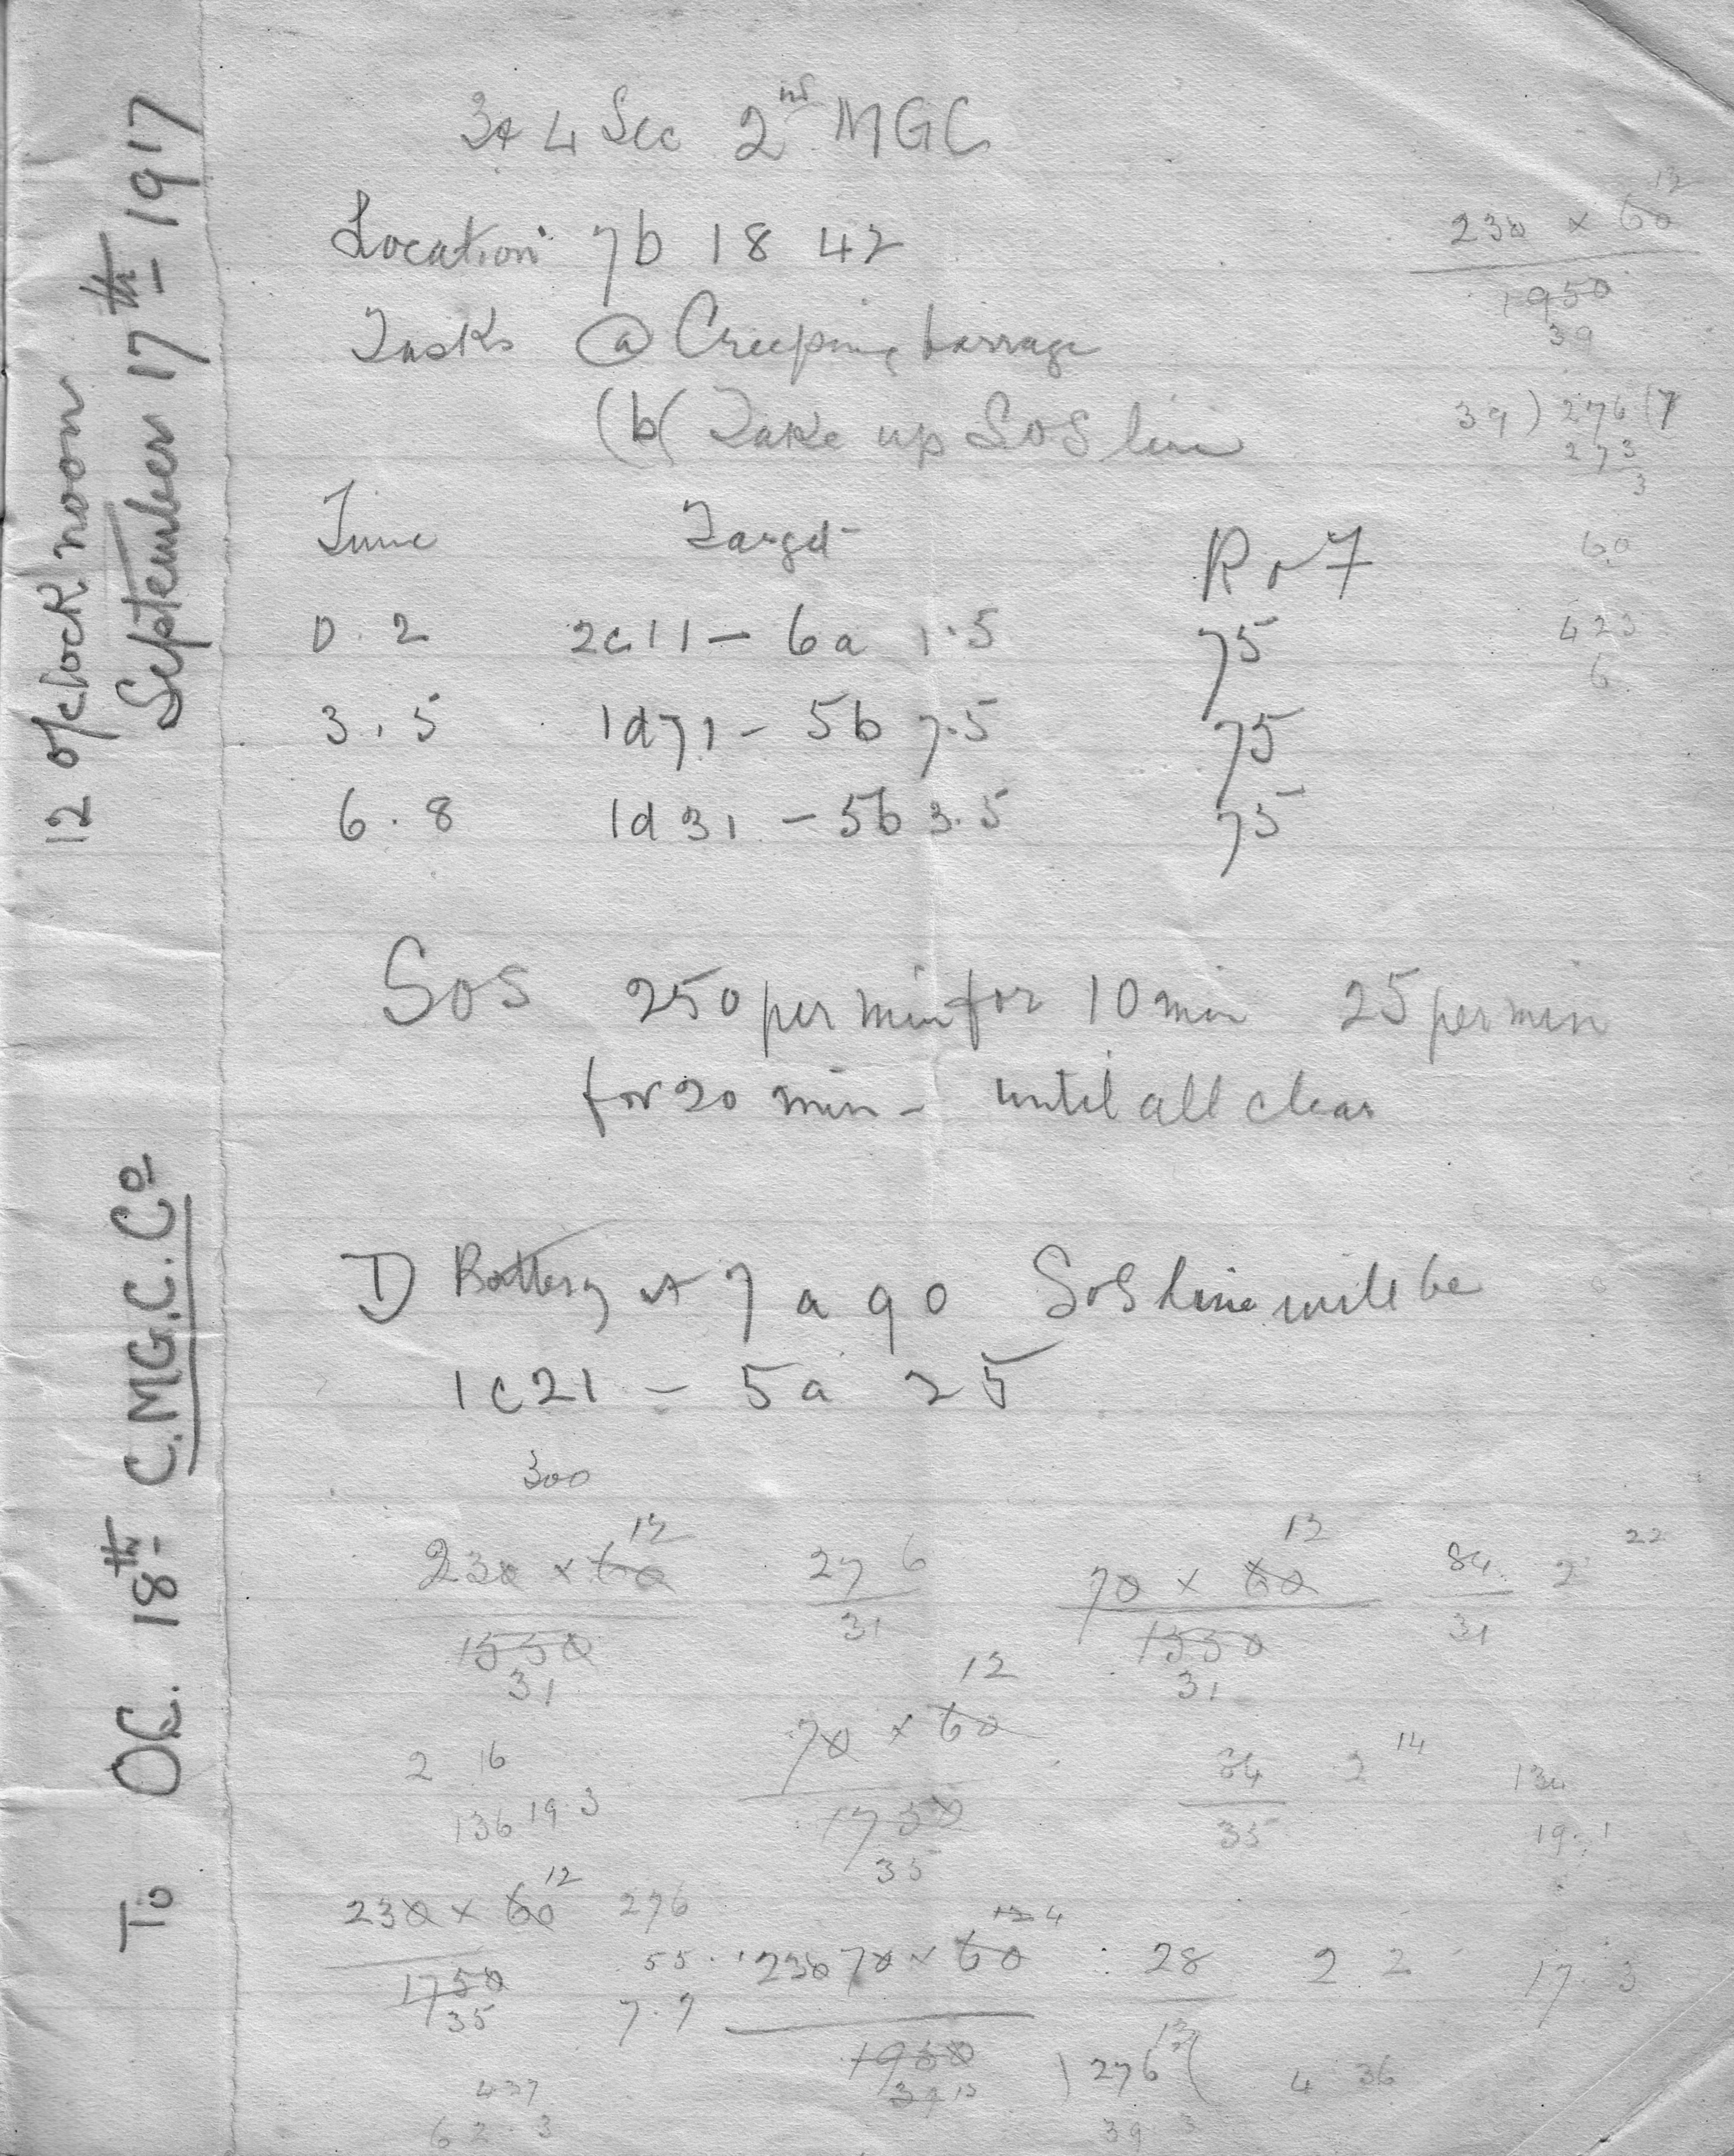 12 o/clock noon
September 17th 1917
To OC. 18th C.M.G.C. Co
3 & 4 Sec 2nd MGC
Location 7b 18 42
Tasks (a) Creeping barrage
(b( Take up SOS line
Time Target R of F
0 . 2 2c11 – 6a 1.5 75
3 . 5 1d71 – 5b 7.5 75
6 . 8 1d31 – 5b 3.5 75
SOS 250 per min for 10 min 25 per min
for 20 min – until all clear
D Battery at 7 a 90 SOS line will be
1c21 – 5a 25
12
230 x 60
1950
39
39 ) 276 (7
273
3
60
423
6
300
12 12 22
230 x 60 276 70 x 60 84 2
1550 31 1550 31
31 31
12
2 16 70 x 60 84 2 14 134
136 19.3 1750 35 19.1
35
12
230 x 60 276 230 70 x 60 28 2 2 17.3
1750 55 1950 13
35 7.9 39 ) 276 ( 4 36
437 39
62.3